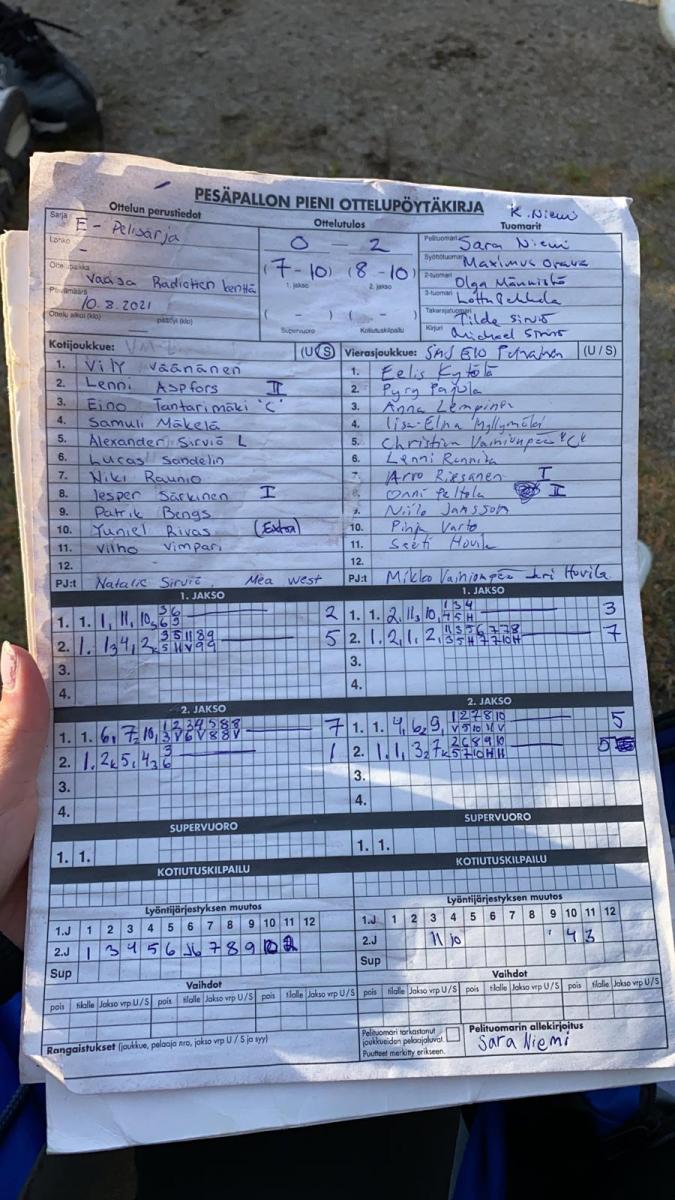 PESÄPALLON PIENI OTTELUPÖYTÄKIRJA
K. Niemi
Ottelun perustiedot
Ottelutulos
Tuomarit
Sarja E - Pelisarja
Lohko -
Ottelupaikka Vaasa Radiotien kenttä
Päivämäärä 10.8.2021
Ottelu alkoi (klo) päättyi (klo)
0 - 2
(7-10) (8-10)
1. jakso 2. jakso
( - ) ( - )
Supervuoro Kotiutuskilpailu
Pelituomari Sara Niemi
Syöttötuomari Maximus Orava
2-tuomari Olga Männistö
3-tuomari Lotta
Takarajatuomari Tilde Sirviö
Kirjuri Michael Sirviö
Kotijoukkue: (U/S)
1. Väänänen
2. Lenni Aspfors II
3. Eino Tantarimäki "C"
4. Samuli Mäkelä
5. Alexander Sirviö L
6. Lucas Sandelin
7. Niki Raunio
8. Jesper Särkinen I
9. Patrik Bengs
10. Yuniel Rivas (Extra)
11. Vilho Vimpari
12.
PJ:t Natalie Sirviö, Mea West
Vierasjoukkue: (U/S)
1. Eelis Kytölä
2. Pyry Pajula
3. Anna Lempinen
4. Iisa-Elna Myllymäki
5. Christian Vainionpää "C"
6. Lenni Rannila
7. Arvo Riesanen I
8. Onni Peltola II
9. Niilo Jansson
10. Pinja Varto
11. Seeti Hovila
12.
PJ:t Mikko Vainionpää Jeri Hovila
1. JAKSO
1. 1. 1, 11, 10, 2
2. 1. 5
3.
4.
1. JAKSO
1. 1. 2, 11, 10, 3
2. 1. 2, 1, 2, 7
3.
4.
2. JAKSO
1. 1. 6, 7, 10, 7
2. 1. 1
3.
4.
2. JAKSO
1. 1. 4, 6, 9, 5
2. 1. 1, 5
3.
4.
SUPERVUORO
1. 1.
SUPERVUORO
1. 1.
KOTIUTUSKILPAILU
KOTIUTUSKILPAILU
Lyöntijärjestyksen muutos
1.J 1 2 3 4 5 6 7 8 9 10 11 12
2.J 1 3 4 5 6 7 8 9 10 2
Sup
Lyöntijärjestyksen muutos
1.J 1 2 3 4 5 6 7 8 9 10 11 12
2.J 11 10 4 3
Sup
Vaihdot
pois tilalle Jakso vrp U/S pois tilalle Jakso vrp U/S pois tilalle Jakso vrp U/S
Vaihdot
pois tilalle Jakso vrp U/S pois tilalle Jakso vrp U/S pois tilalle Jakso vrp U/S
Rangaistukset (joukkue, pelaaja nro, jakso vrp U / S ja syy)
Pelituomari tarkastanut
joukkueiden pelaajaluvat.
Puutteet merkitty erikseen.
Pelituomarin allekirjoitus
Sara Niemi